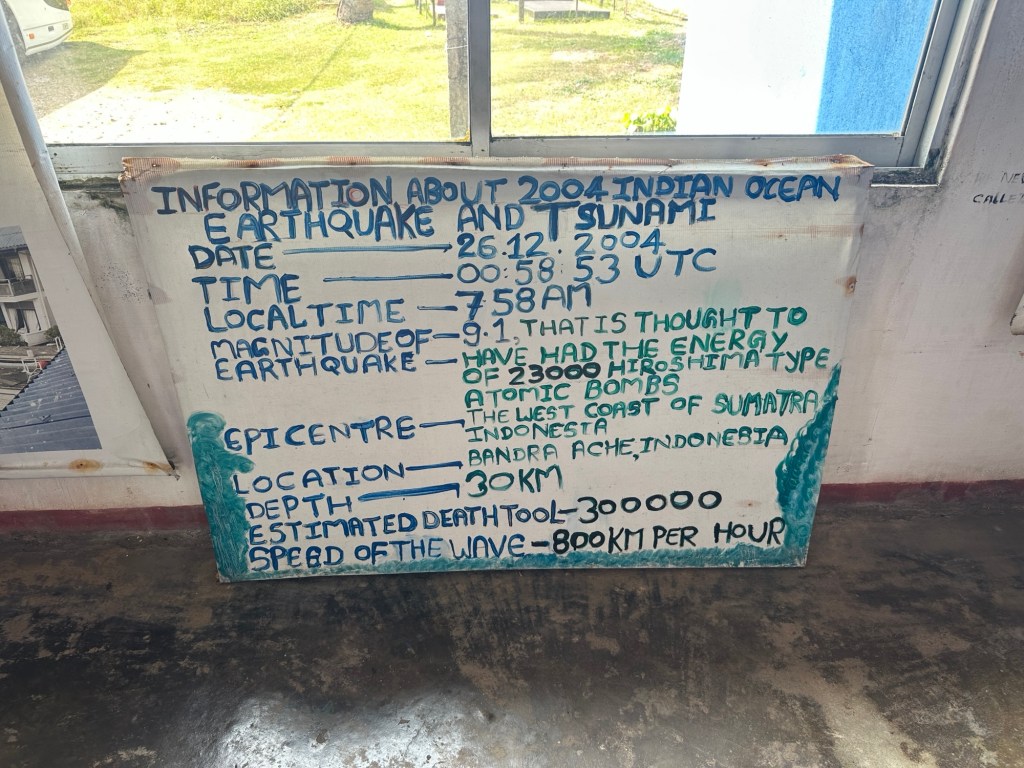 INFORMATION ABOUT 2004 INDIAN OCEAN
EARTHQUAKE AND TSUNAMI
DATE 26.12.2004
TIME 00:58:53 UTC
LOCAL TIME - 758 AM
MAGNITUDE OF - 9.1, THAT IS THOUGHT TO
EARTHQUAKE - HAVE HAD THE ENERGY
OF 23000 HIROSHIMA TYPE
ATOMIC BOMBS
EPICENTRE - THE WEST COAST OF SUMATRA
INDONESTA
LOCATION - BANDRA ACHE, INDONEBIA
DEPTH - 30KM
ESTIMATED DEATH TOOL - 300000
SPEED OF THE WAVE - 800KM PER HOUR
CALLED